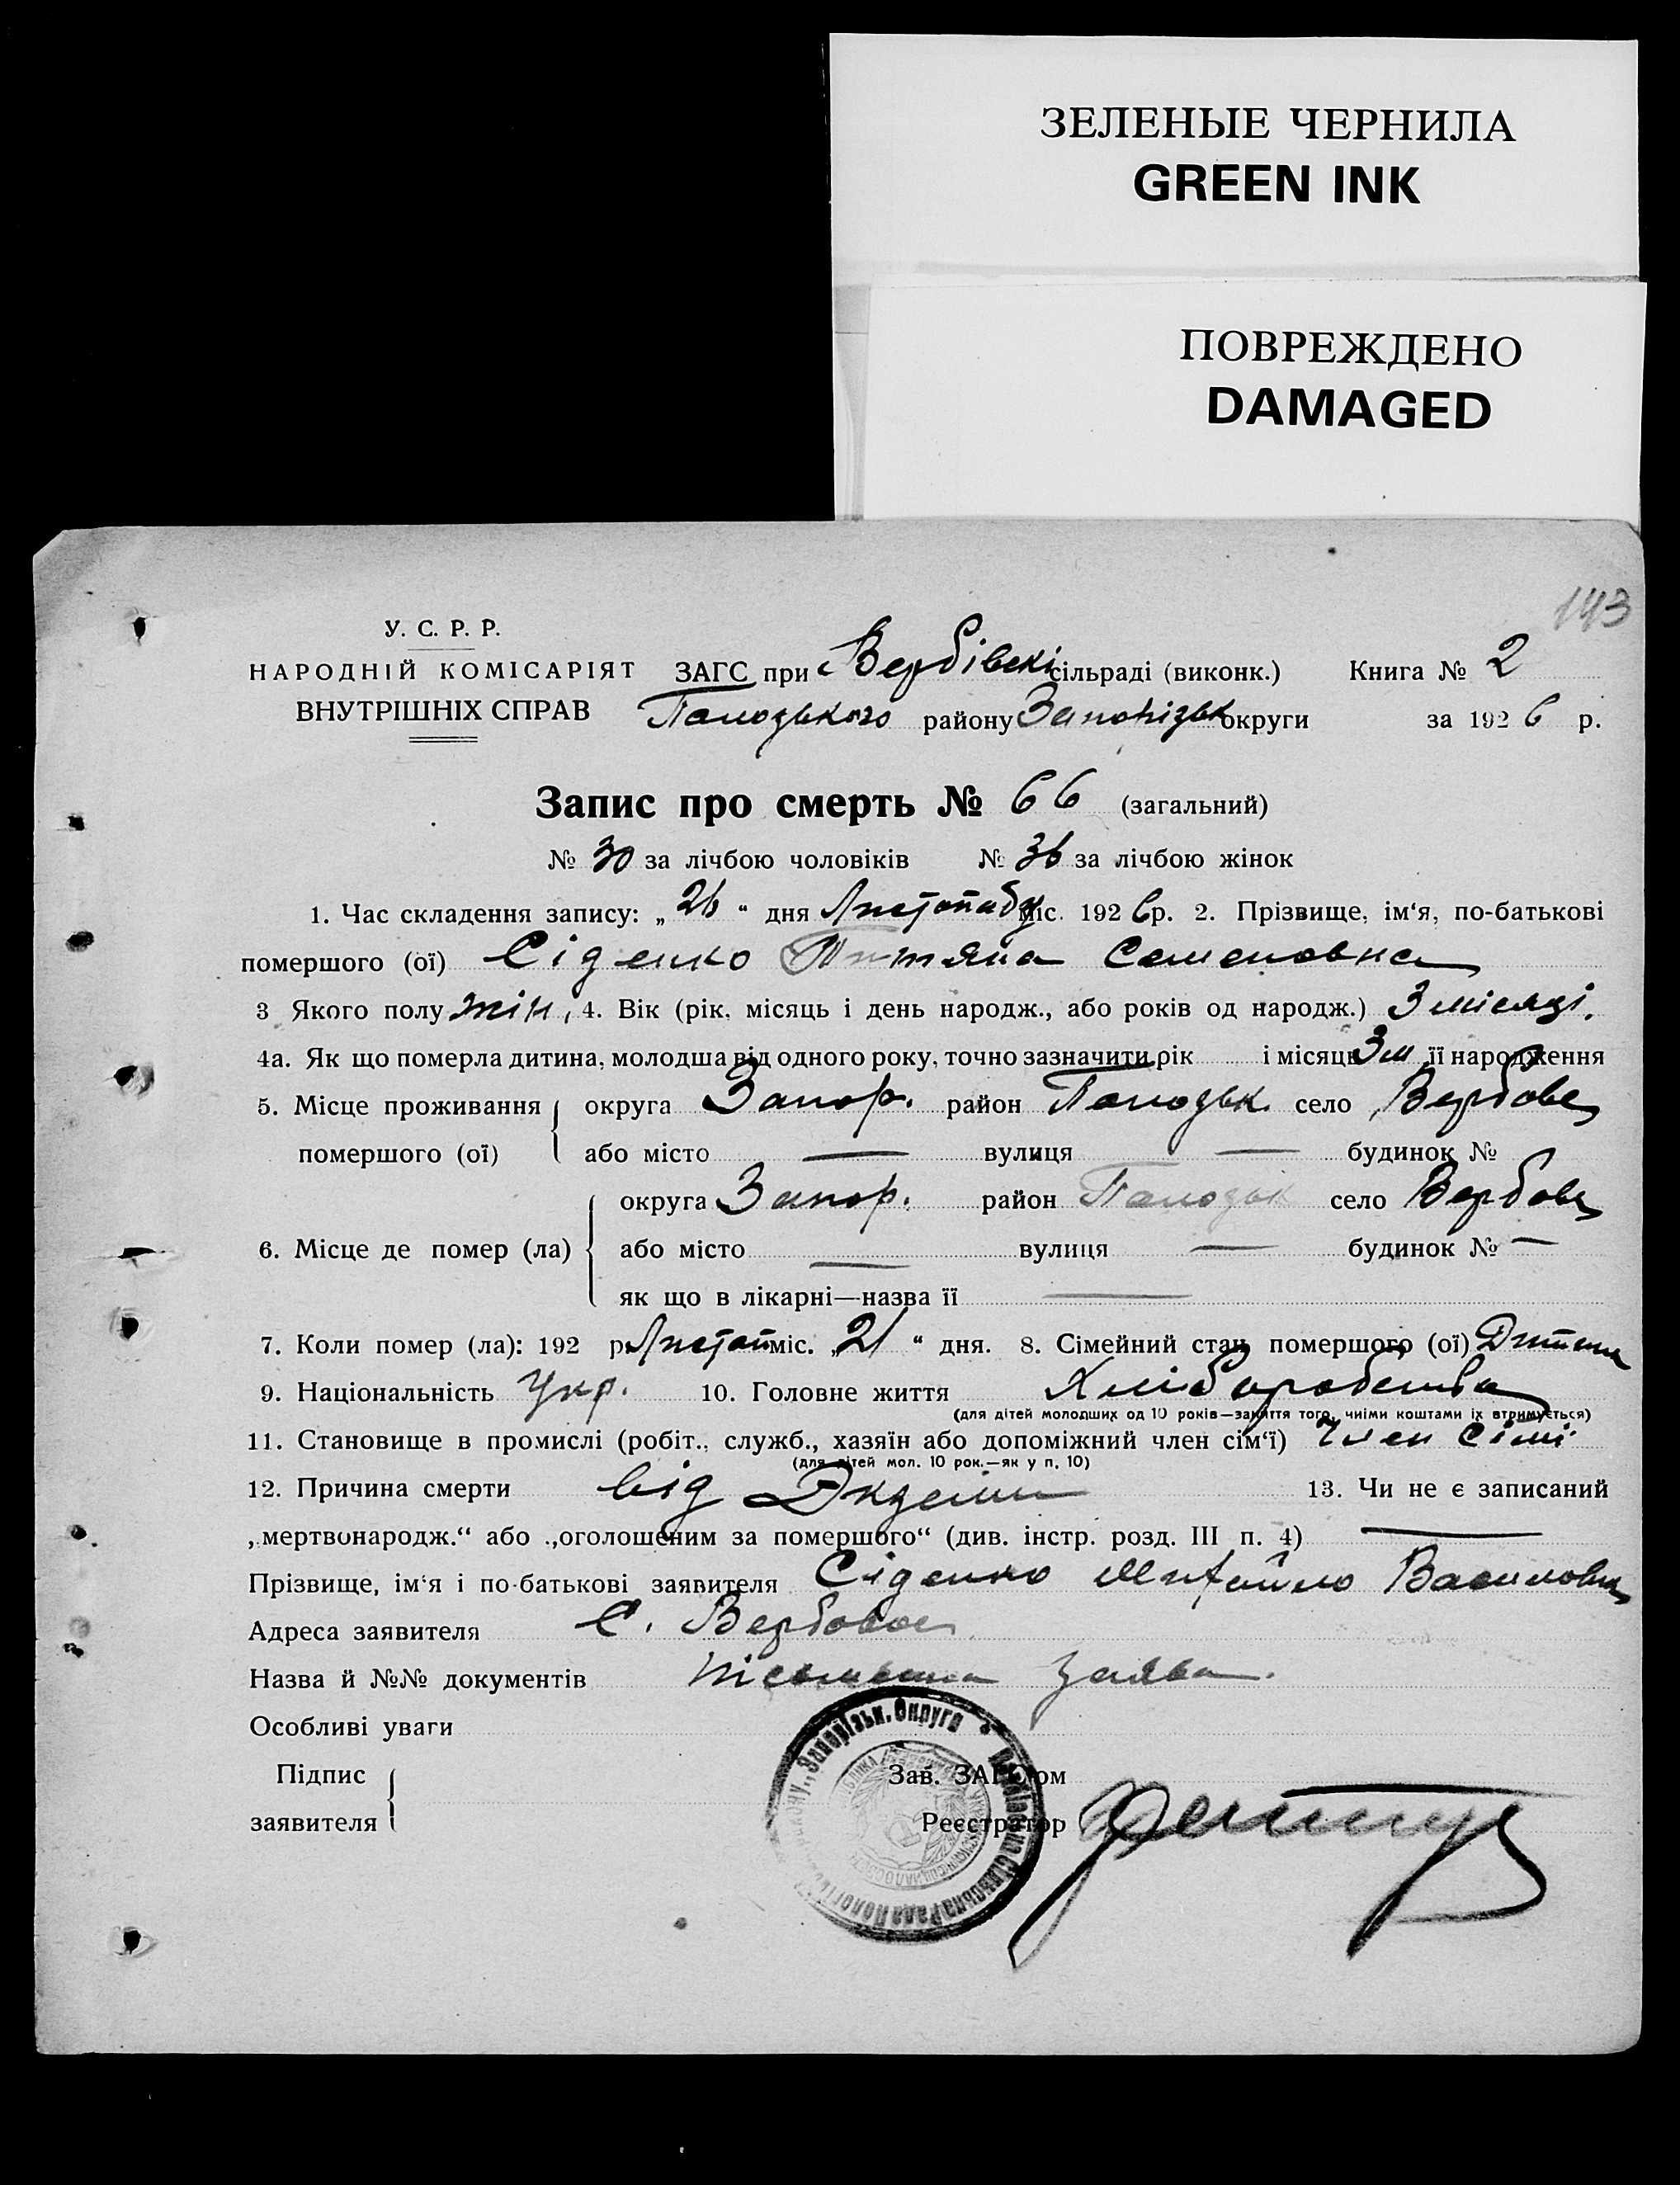 ЗЕЛЕНЫЕ ЧЕРНИЛА
GREEN INK
ПОВРЕЖДЕНО
DAMAGED
143
У. С. Р. Р.
НАРОДНІЙ КОМІСАРІЯТ
ВНУТРІШНІХ СПРАВ
ЗАГС при Вербівскі сільраді (виконк.) Книга № 2
Пологського району Запоріжськ округи за 1926 р.
Запис про смерть № 66 (загальний)
№ 30 за лічбою чоловіків № 36 за лічбою жінок
1. Час складення запису: „26“ дня Листопада міс. 1926 р. 2. Прізвище, ім‘я, по-батькові
помершого (ої) Сіденко Титяна Семеновна
3 Якого полу жін, 4. Вік (рік, місяць і день народж., або років од народж.) 3 місяці.
4а. Як що померла дитина, молодша від одного року, точно зазначити рік і місяць 3 м її народження
5. Місце проживання помершого (ої) округа Запор. район село Вербове
або місто — вулиця — будинок №
6. Місце де помер (ла) округа Запор. район село Вербове
або місто — вулиця — будинок № —
як що в лікарні—назва її —
7. Коли помер (ла): 192 р. Листоп міс. „21“ дня. 8. Сімейний стан помершого (ої) Дитина
9. Національність Укр. 10. Головне життя Хліборобства
(для дітей молодших од 10 років—заняття того, чиїми коштами їх втримується)
11. Становище в промислі (робіт., служб., хазяїн або допоміжний член сім‘ї) Член Сімі
(для дітей мол. 10 рок.—як у п. 10)
12. Причина смерти від Экземи 13. Чи не є записаний
„мертвонародж.“ або „оголошеним за помершого“ (див. інстр. розд. III п. 4) —
Прізвище, ім‘я і по-батькові заявителя Сіденко Михайло
Адреса заявителя С. Вербовое
Назва й №№ документів заява.
Особливі уваги
Підпис заявителя
Зав. ЗАГС‘ом
Реєстратор
Запорізьк. Округа Вербівська Сільська Рада